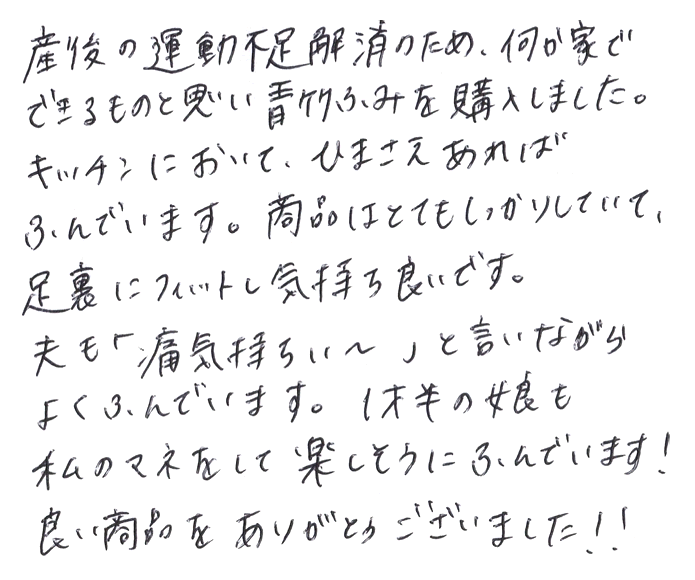 産後の運動不足解消のため、何か家で
できるものと思い青竹ふみを購入しました。
キッチンにおいて、ひまさえあれば
ふんでいます。商品はとてもしっかりしていて、
足裏にフィットし気持ち良いです。
夫も「痛気持ちい〜」と言いながら
よくふんでいます。1才半の娘も
私のマネをして楽しそうにふんでいます!
良い商品をありがとうございました!!